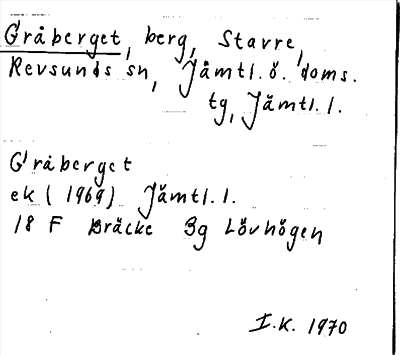 Gråberget, berg, Stavre,
Revsunds sn, Jämtl.ö. doms.
tg, Jämtl. l.
Gråberget
ek (1969) Jämtl. l.
18 F Bräcke 3g Lövhögen
I.K. 1970